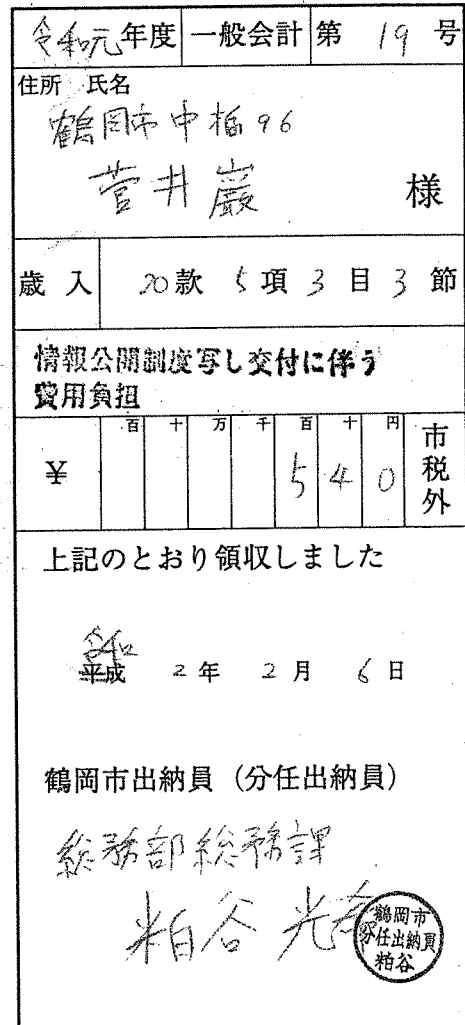 令和元年度 一般会計 第 19 号
住所 氏名
鶴岡市中楯96
菅井巌 様
歳入 20款 5項 3目 3節
情報公開制度写し交付に伴う
費用負担
百 十 万 千 百 十 円
¥ 540 市税外
上記のとおり領収しました
令和
平成 2年 2月 6日
鶴岡市出納員（分任出納員）
総務部総務課
粕谷 光
鶴岡市
分任出納員
粕谷